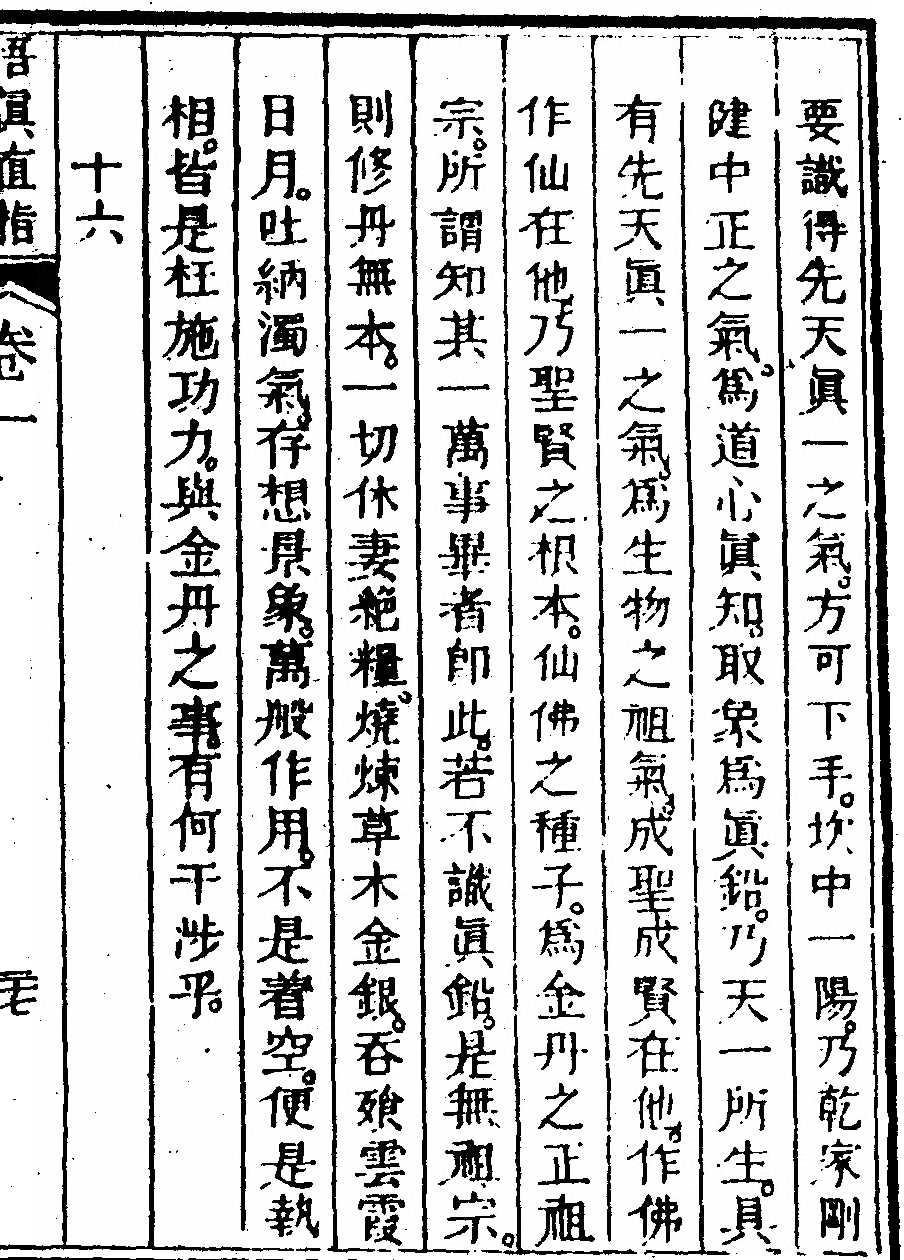 要識得先天眞一之氣。方可下手。坎中一陽。乃乾家剛
健中正之氣。爲道心眞知。取象爲眞鉛。乃天一所生。具
有先天眞一之氣。爲生物之祖氣。成聖成賢在他。作佛
作仙在他。乃聖賢之根本。仙佛之種子。爲金丹之正祖
宗。所謂知其一萬事畢者卽此。若不識眞鉛。是無祖宗。
則修丹無本。一切休妻絶糧。燒煉草木金銀。吞飱雲霞
日月。吐納濁氣。存想景象。萬般作用。不是着空。便是執
相。皆是枉施功力。與金丹之事。有何干涉乎。
十六
悟眞直指
卷一